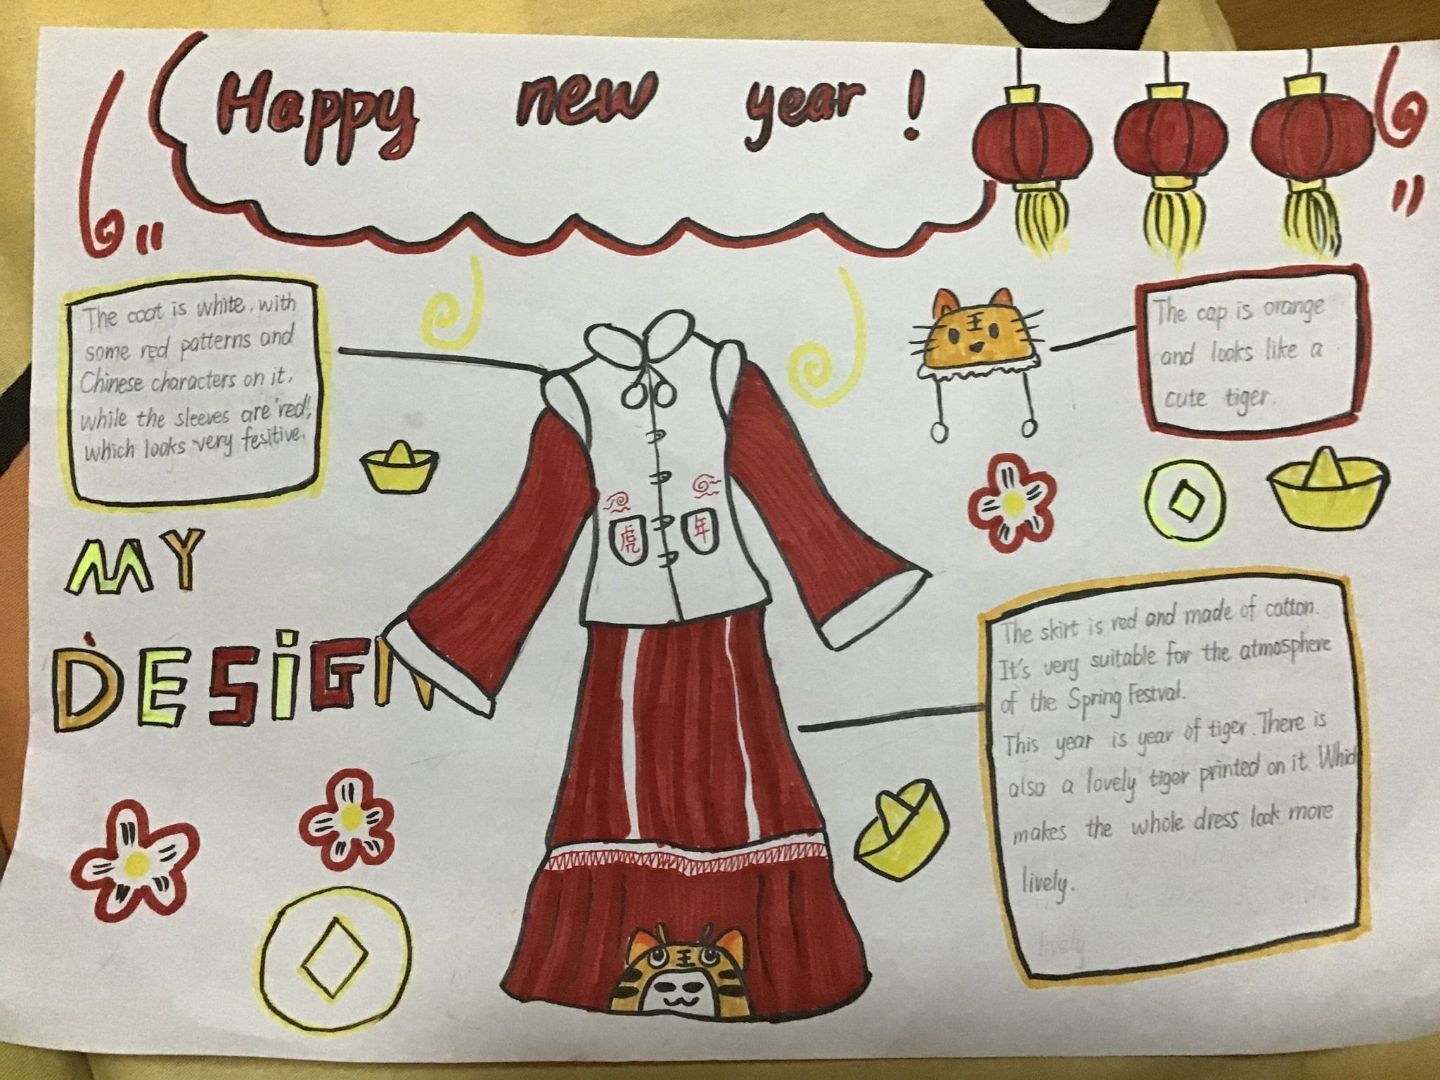 Happy new year!
The coat is white, with
some red patterns and
Chinese characters on it,
while the sleeves are red,
which looks very fesitive.
The cap is orange
and looks like a
cute tiger.
王
虎 年
MY
DESIGN
The skirt is red and made of catton.
It's very suitable for the atmosphere
of the Spring Festval.
This year is year of tiger. There is
also a lovely tiger printed on it. Which
makes the whole dress look more
lively.
lively
王